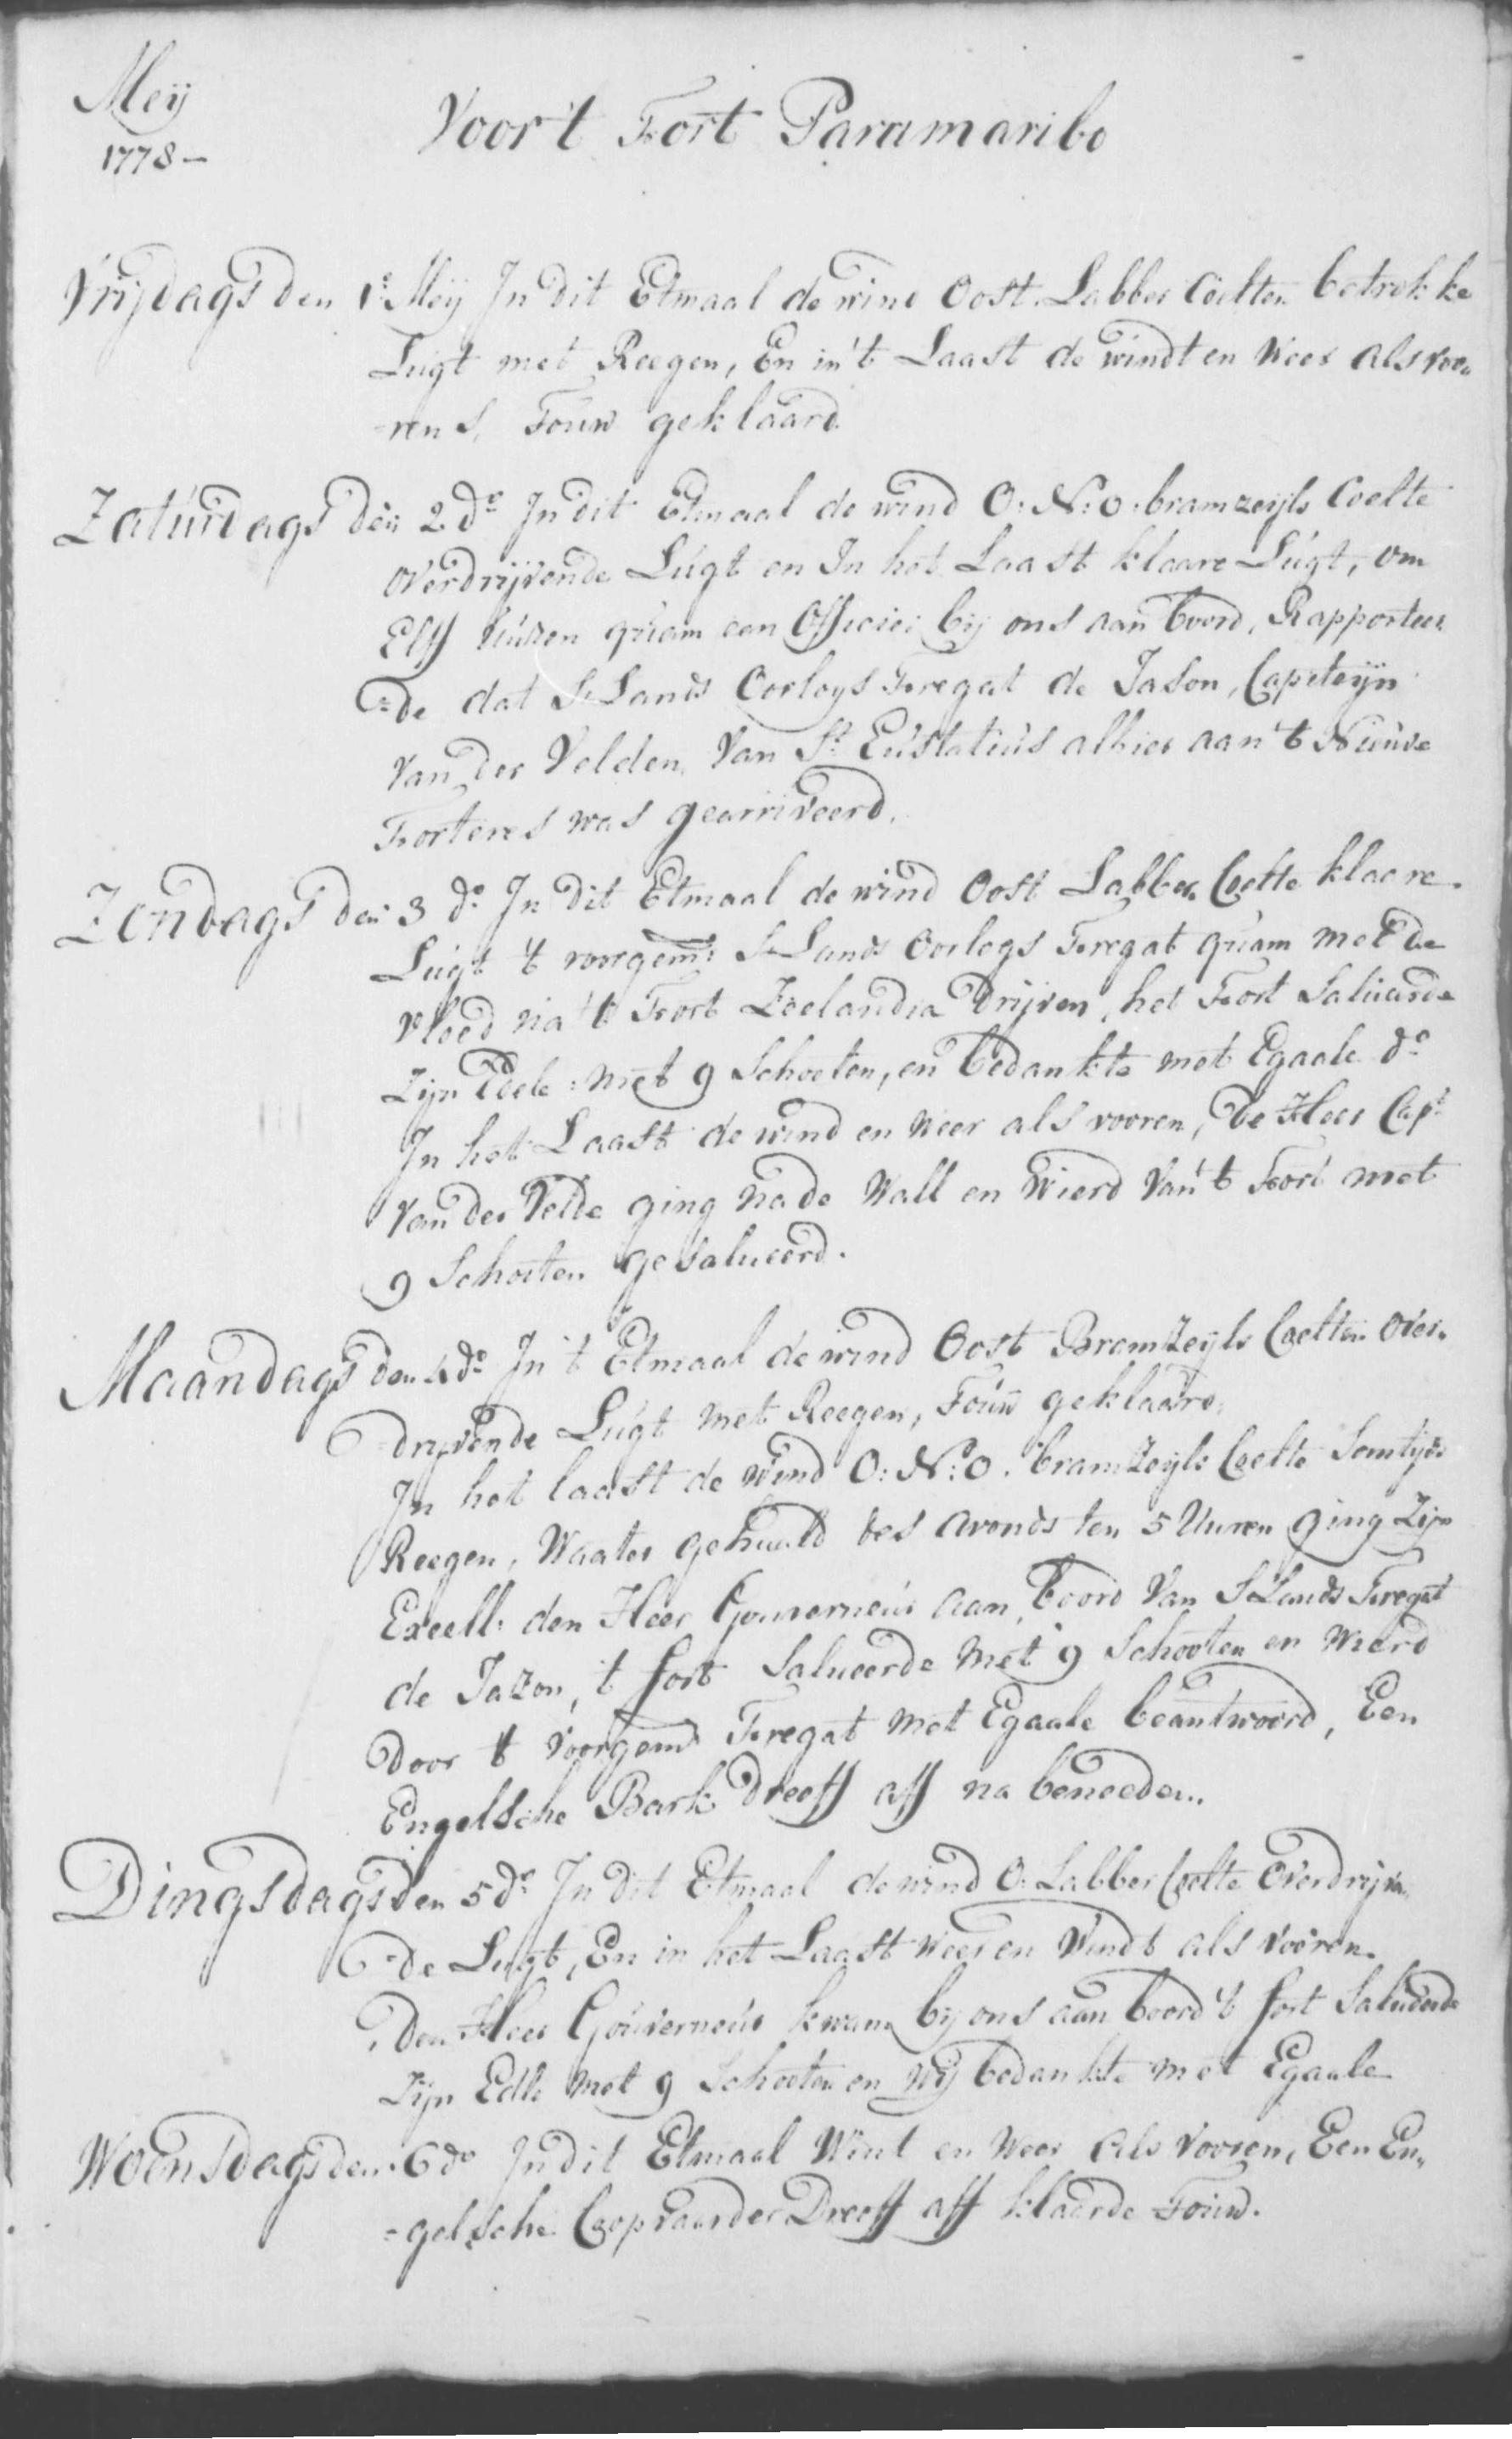 Meij
1778 –
Voor 't Fort Paramaribo
Vrijdags den 1e Meij In dit Etmaal de wind Oost. Labber Coelten betrokke
Lugt met Reegen, En in 't Laast de windt en Weer als voo„
-rens, Touw geklaard.
Zaturdags den 2 do In dit Etmaal de wind O: N: O: bramzeijls Coelte
overdrijvende Lugt en In het Laast klaare Lugt, om
Elff Uuren quam een Officier bij ons aan boord, Rapporteer
=de dat S Lands Oorlogs Fregat de Jason, Capiteijn
van der Velden, Van St. Eustatius alhier aan 't Nieuwe
Forteres was gearriveerd.
Zondags den 3 do In dit Etmaal de wind Oost Labber Coelte klaare
Lugt 't voorgemd S Lands Oorlogs Fregat quam met de
vloed na 't Fort Zeelandia drijven, het Fort Saluarde
zijn Edele: met 9 Schooten, en bedankte met Egaale do
In het Laast de wind en weer als vooren, De Heer Capt
van der Velde ging na de Wall en Wierd Van 't Fort met
9 Schooten gesalueerd.
Maandags den 4 do In 't Etmaal de wind Oost Bramzeijls Coelten over„
=drijvende Lugt met Reegen, Touw geklaard,
In het laast de wind O: N: O. bramzeijls Coelte Somtijds
Reegen, Waater gehaald des avonds ten 5 Uuren ging Zijn
Excell: den Heer Gouverneur aan boord Van S Lands Fregat
de Jazon, 't fort Salueerde met 9 Schooten en wierd
door 't Voorgemd Fregat met Egaale beantwoord, Een
Engelsche Bark dreeff aff na beneeden.
Dingsdags den 5 do In dit Etmaal de wind O. Labber Coelte Overdrijven
=de Lugt, En in het Laast weer en Windt als vooren.
Den Heer Gouverneur kwam bij ons aan boord 't fort Salueerde
Zijn Edle met 9 Schooten en wij bedankte met Egaale
Woensdags den 6 do In dit Etmaal Wint en Weer als Vooren, Een En„
=gelsche Coopvaarder Dreeff aff klaarde Touw.